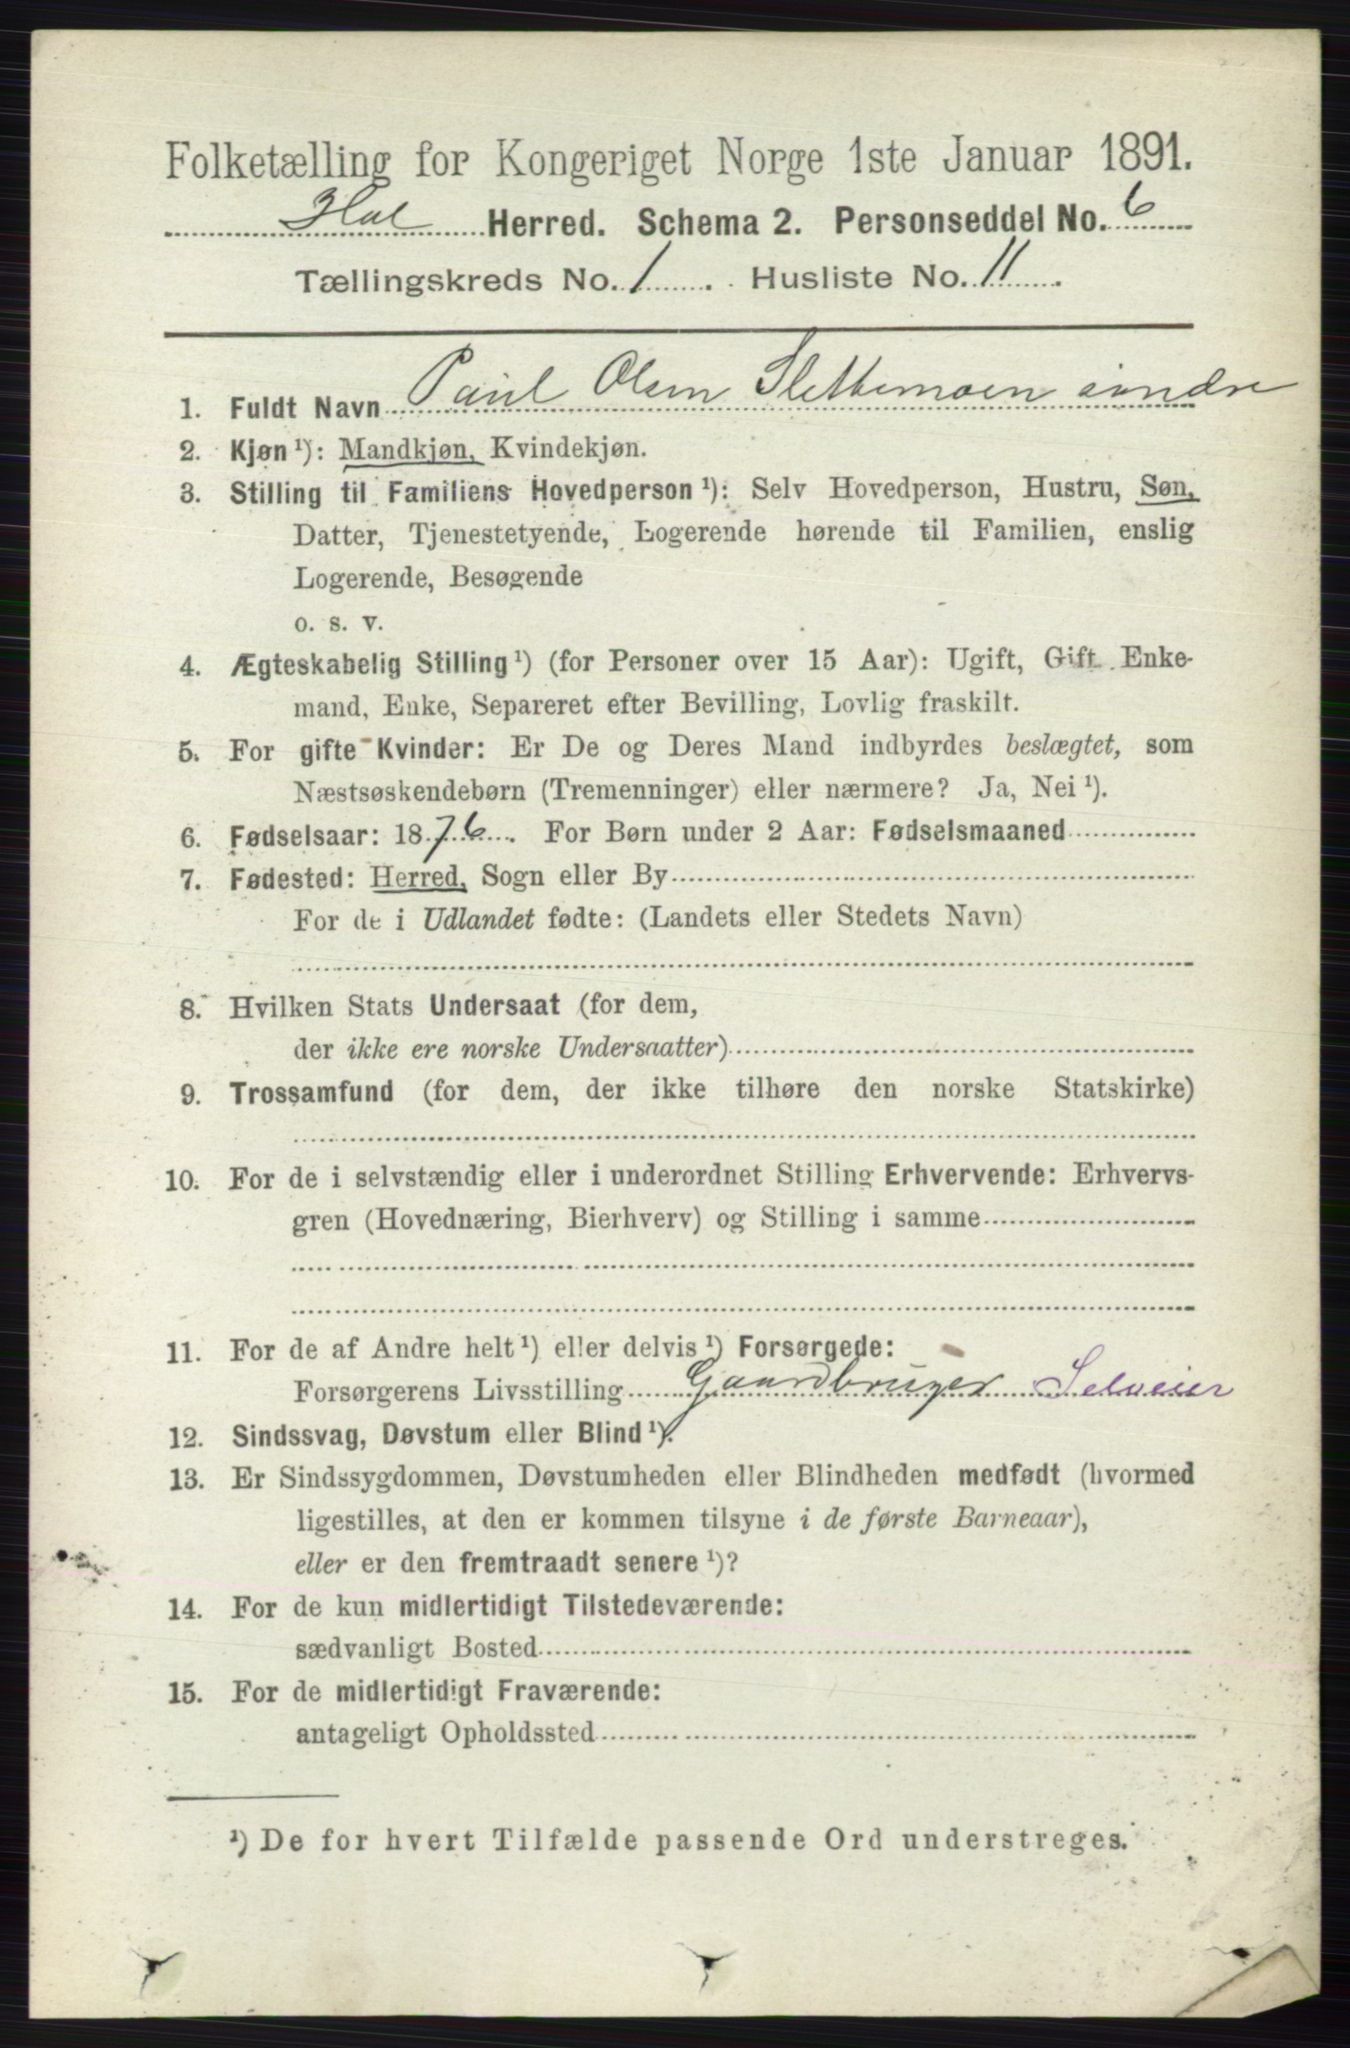 Folketælling for Kongeriget Norge 1ste Januar 1891.
Hol Herred. Schema 2. Personseddel No. 6
Tællingskreds No. 1. Husliste No. 11.
1. Fuldt Navn Paul Olsen Slettemoen søndre
2. Kjøn ¹): Mandkjøn, Kvindekjøn.
3. Stilling til Familiens Hovedperson ¹): Selv Hovedperson, Hustru, Søn,
Datter, Tjenestetyende, Logerende hørende til Familien, enslig
Logerende, Besøgende
o. s. v.
4. Ægteskabelig Stilling ¹) (for Personer over 15 Aar): Ugift, Gift, Enke-
mand, Enke, Separeret efter Bevilling, Lovlig fraskilt.
5. For gifte Kvinder: Er De og Deres Mand indbyrdes beslægtet, som
Næstsøskendebørn (Tremenninger) eller nærmere? Ja, Nei ¹).
6. Fødselsaar: 1876. For Børn under 2 Aar: Fødselsmaaned
7. Fødested: Herred, Sogn eller By
For de i Udlandet fødte: (Landets eller Stedets Navn)
8. Hvilken Stats Undersaat (for dem,
der ikke ere norske Undersaatter)
9. Trossamfund (for dem, der ikke tilhøre den norske Statskirke)
10. For de i selvstændig eller i underordnet Stilling Erhvervende: Erhvervs-
gren (Hovednæring, Bierhverv) og Stilling i samme
11. For de af Andre helt ¹) eller delvis ¹) Forsørgede:
Forsørgerens Livsstilling Gaardbruger Selveier
12. Sindssvag, Døvstum eller Blind ¹).
13. Er Sindssygdommen, Døvstumheden eller Blindheden medfødt (hvormed
ligestilles, at den er kommen tilsyne i de første Barneaar),
eller er den fremtraadt senere ¹)?
14. For de kun midlertidigt Tilstedeværende:
sædvanligt Bosted
15. For de midlertidigt Fraværende:
antageligt Opholdssted
¹) De for hvert Tilfælde passende Ord understreges.